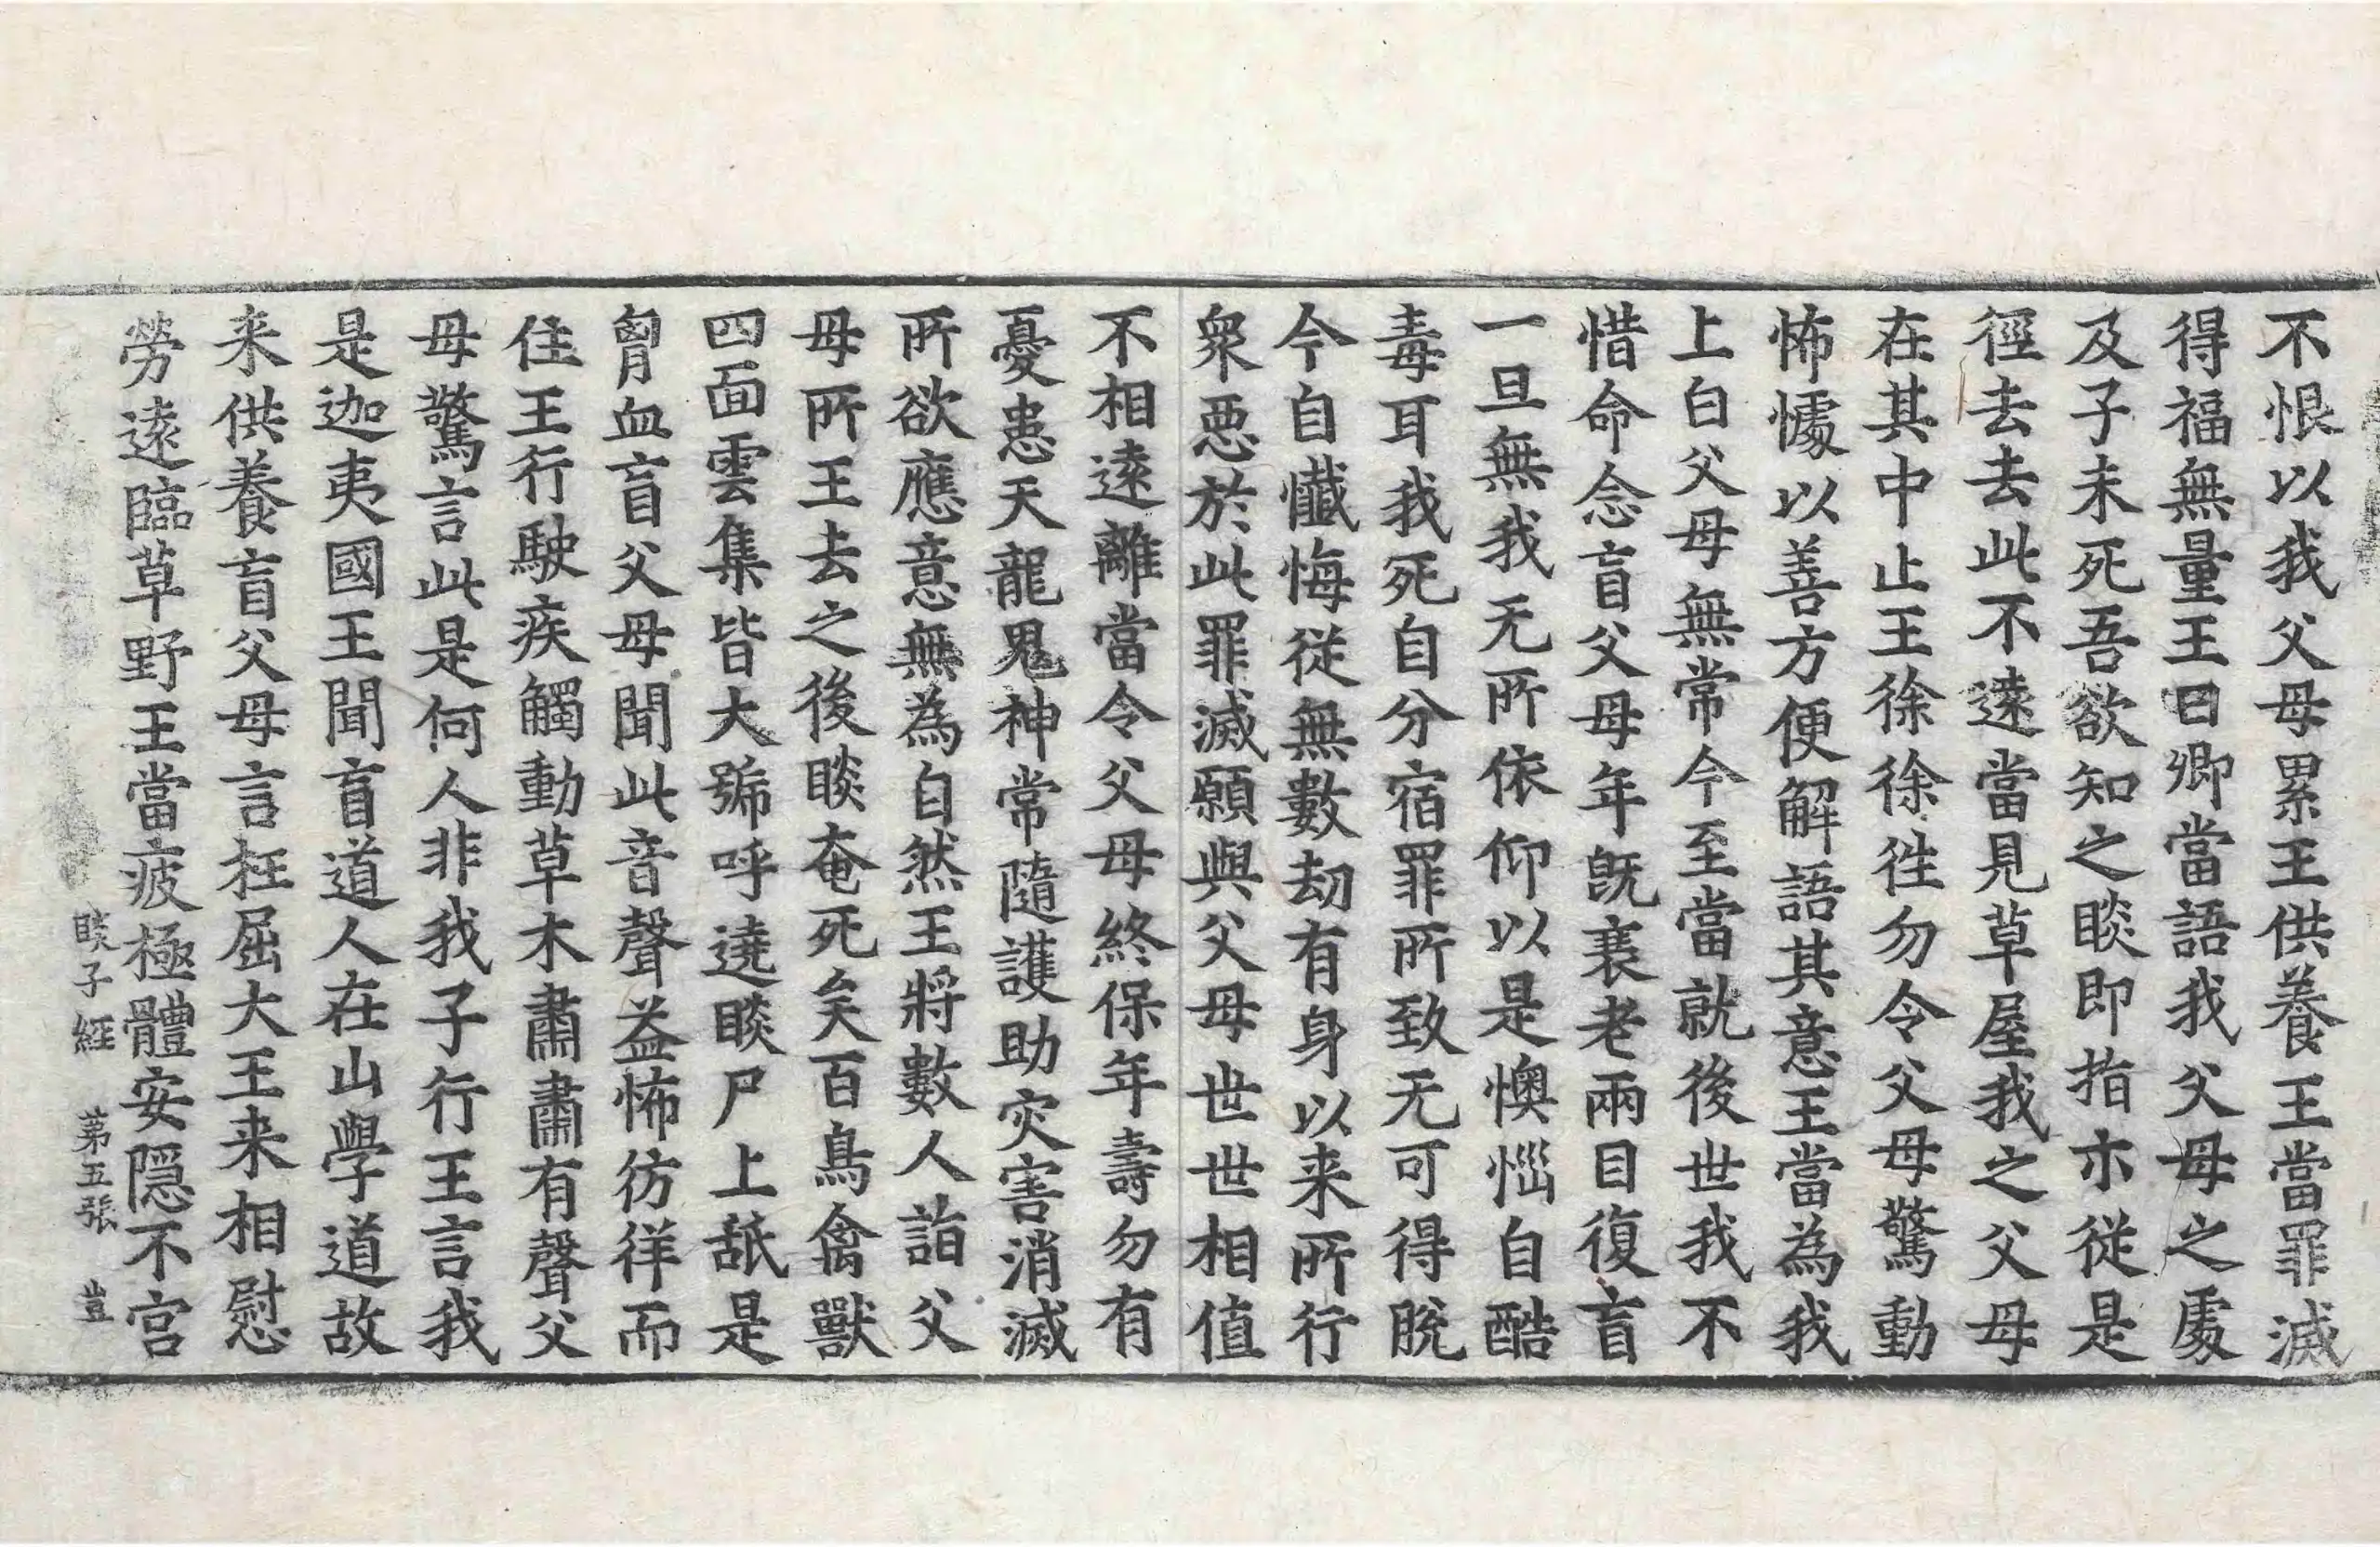 不恨以我父母累王供養王當罪滅
得福無量王曰卿當語我父母之處
及子未死吾欲知之睒即指示從是
徑去去此不遠當見草屋我之父母
在其中止王徐徐徃勿令父母驚動
怖懅以善方便解語其意王當為我
上白父母無常今至當就後世我不
惜命念盲父母年旣衰老兩目復盲
一旦無我无所依仰以是懊惱自酷
毒耳我死自分宿罪所致无可得脫
今自懺悔從無數劫有身以来所行
衆惡於此罪滅願與父母世世相值
不相遠離當令父母終保年壽勿有
憂患天龍鬼神常隨護助灾害消滅
所欲應意無為自然王將數人詣父
母所王去之後睒奄死矣百鳥禽獸
四面雲集皆大號呼遶睒尸上舐是
胷血盲父母聞此音聲益怖彷徉而
住王行駛疾觸動草木肅肅有聲父
母驚言此是何人非我子行王言我
是迦夷國王聞盲道人在山學道故
来供養盲父母言枉屈大王来相慰
勞遠臨草野王當疲極體安隱不宫
睒子經 第五張 豈